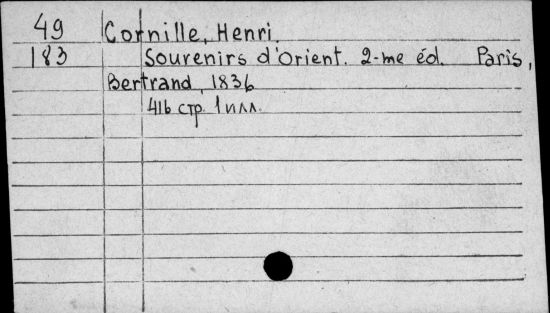 49 Cornille, Henri.
183 Sourenirs d'Orient. 2-me éd. Paris,
Bertrand, 1836
416 стр. 1 илл.